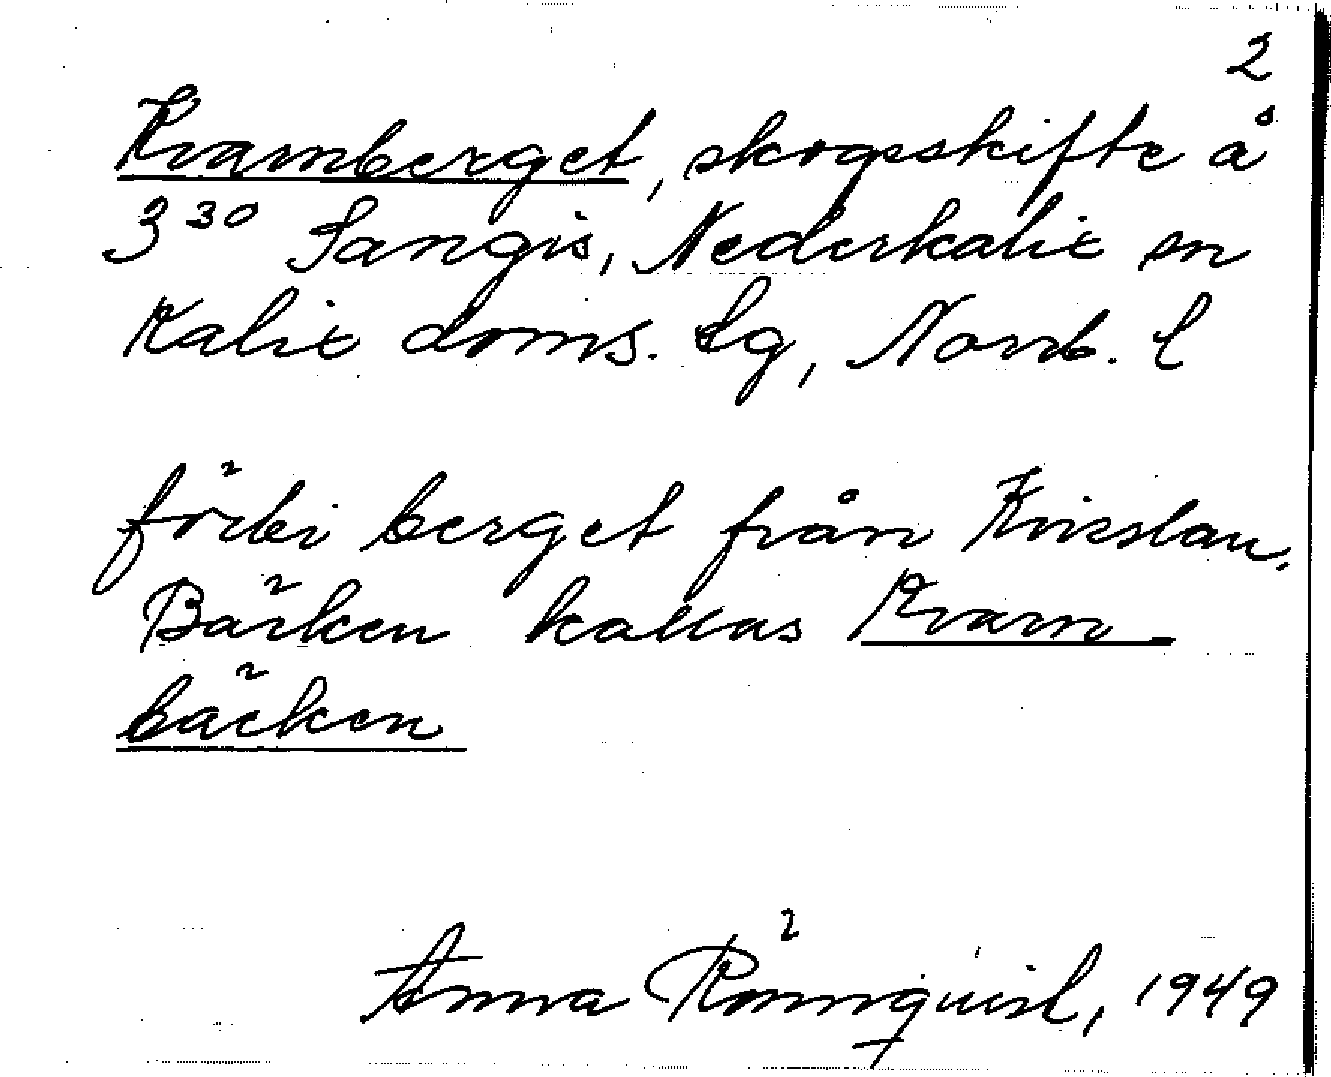 2
Kvarnberget, skogsskifte å
3³⁰ Sangis, Nederkalix sn
Kalix doms. lg, Norrb. l
förbi berget från Kvisslau.
Bäcken kallas Kvarn-
bäcken
Anna Rönnquist, 1949